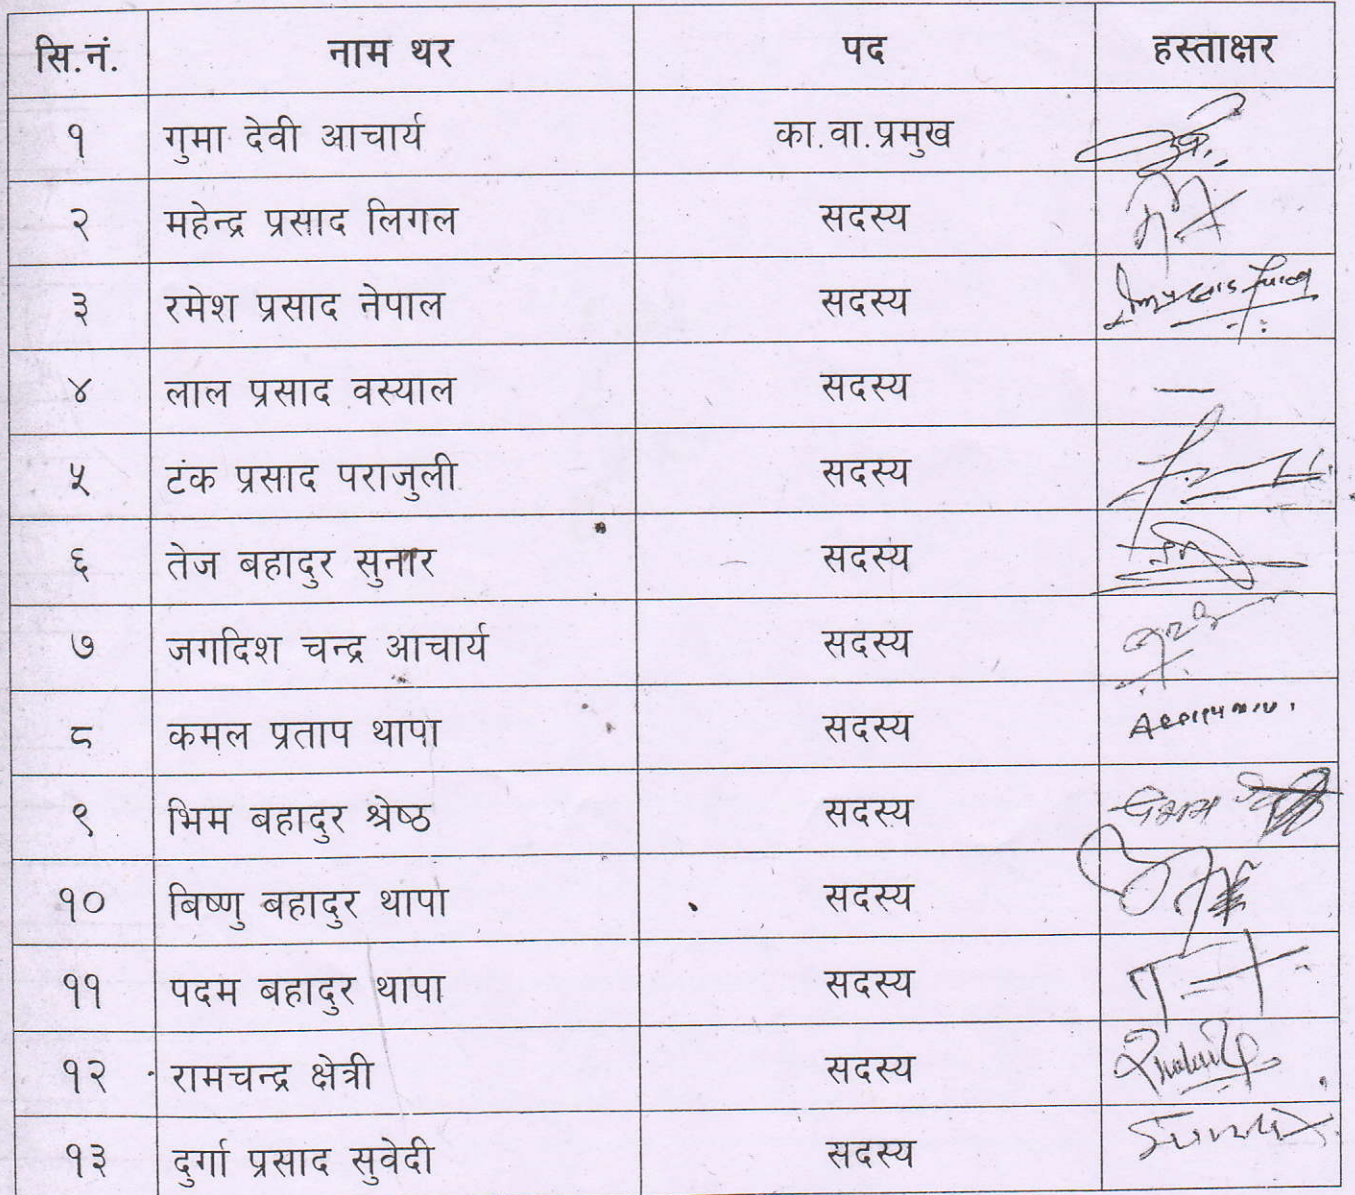 सि.नं. नाम थर पद हस्ताक्षर
१ गुमा देवी आचार्य का.वा.प्रमुख
२ महेन्द्र प्रसाद लिगल सदस्य
३ रमेश प्रसाद नेपाल सदस्य
४ लाल प्रसाद वस्याल सदस्य —
५ टंक प्रसाद पराजुली सदस्य
६ तेज बहादुर सुनार सदस्य
७ जगदिश चन्द्र आचार्य सदस्य
८ कमल प्रताप थापा सदस्य
९ भिम बहादुर श्रेष्ठ सदस्य
१० बिष्णु बहादुर थापा सदस्य
११ पदम बहादुर थापा सदस्य
१२ रामचन्द्र क्षेत्री सदस्य
१३ दुर्गा प्रसाद सुवेदी सदस्य